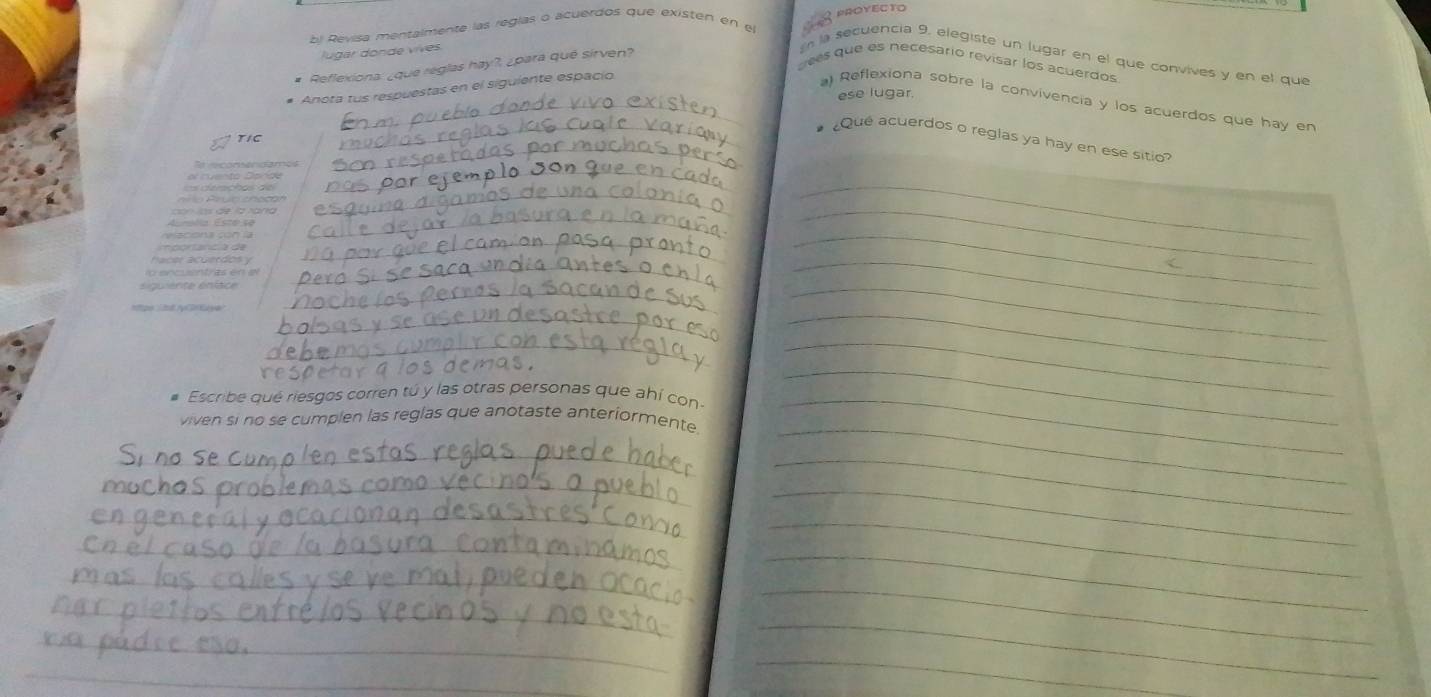 b) Revisa mentalmente las reglas o acuerdos que existen en el
lugar donde vives.
Reflexiona: ¿qué reglas hay?, ¿para qué sirven?
Anota tus respuestas en el siguiente espacio.
En mi pueblo donde vivo existen
muchas reglas las cuale variany
son respetadas por muchas perso
nas por ejemplo son que en cada
esquina digamos de una colonia o
calle dejar la basura en la maña-
na por que el camion pasa pronto
pero si se saca un dia antes o en la
noche los perros la sacan de sus
bolsas y se ase un desastre por eso
debemos cumplir con esta regla y
respetar a los demas.
TIC
Te recomendamos
el cuento Donde
los derechos del
niño Pirulo chocan
con los de la rana
Aurelia. Este se
relaciona con la
importancia de
hacer acuerdos y
lo encuentras en el
siguiente enlace
Escribe qué riesgos corren tú y las otras personas que ahí con-
viven si no se cumplen las reglas que anotaste anteriormente.
Si no se cumplen estas reglas puede haber
muchos problemas como vecinos o pueblo
en general y ocacionan desastres como
en el caso de la basura contaminamos
mas las calles y se ve mal, pueden ocacio-
nar pleitos entre los vecinos y no esta-
ria padre eso.
PROYECTO
En la secuencia 9, elegiste un lugar en el que convives y en el que
crees que es necesario revisar los acuerdos.
a) Reflexiona sobre la convivencia y los acuerdos que hay en
ese lugar.
¿Qué acuerdos o reglas ya hay en ese sitio?